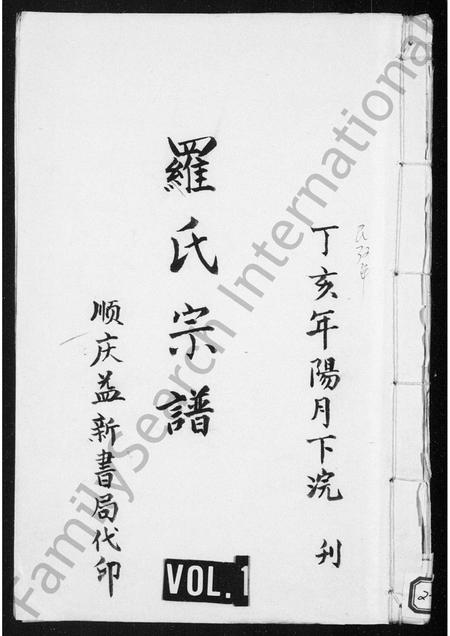 丁亥年陽月下浣 刊
羅氏宗譜
顺庆益新書局代印
VOL.1
2
FamilySearch International